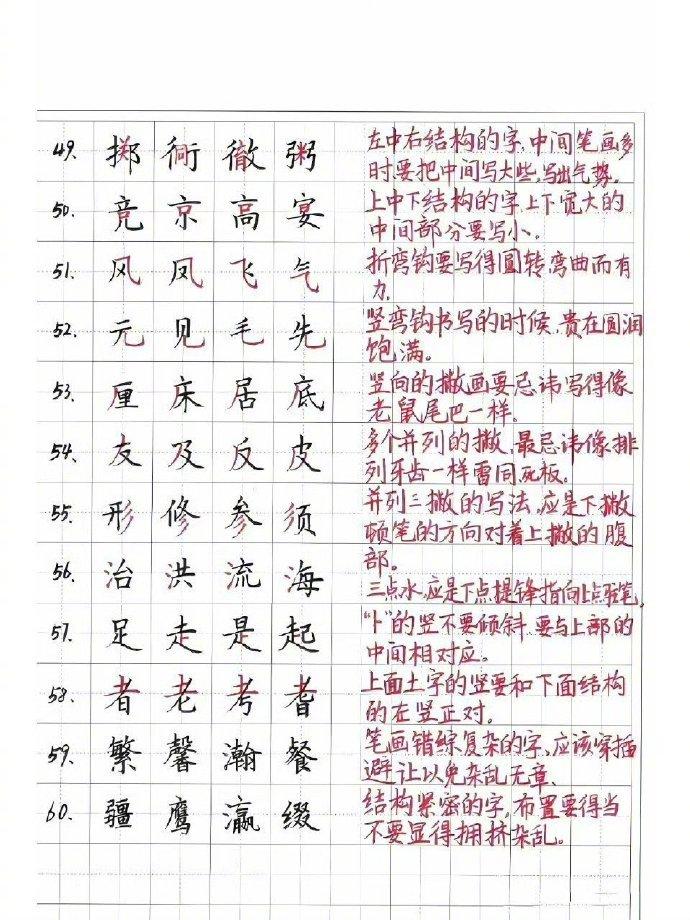 49. 掷 衙 徹 粥 左中右结构的字,中间笔画多
时要把中间写大些,写出气势。
50. 竟 京 高 宴 上中下结构的字,上下宽大的
中间部分要写小。
51. 风 凤 飞 气 折弯钩要写得圆转,弯曲而有
力.
52. 元 见 毛 先 竖弯钩书写的时候,贵在圆润
饱满。
53. 厘 床 居 底 竖向的撇画要忌讳写得像
老鼠尾巴一样.
54. 友 及 反 皮 多个并列的撇,最忌讳像排
列牙齿一样雷同死板.
55. 形 修 参 须 并列三撇的写法,应是下撇
顿笔的方向对着上撇的腹
部.
56. 治 洪 流 海 三点水,应是下点提锋指向上点驻笔,
57. 足 走 是 起 "卜"的竖不要倾斜 要与上部的
中间相对应。
58. 者 老 考 耆 上面土字的竖要和下面结构
的左竖正对.
59. 繁 馨 瀚 餐 笔画错综复杂的字,应该穿插
避让以免杂乱无章.
60. 疆 鹰 瀛 缀 结构紧密的字,布置要得当
不要显得拥挤杂乱。